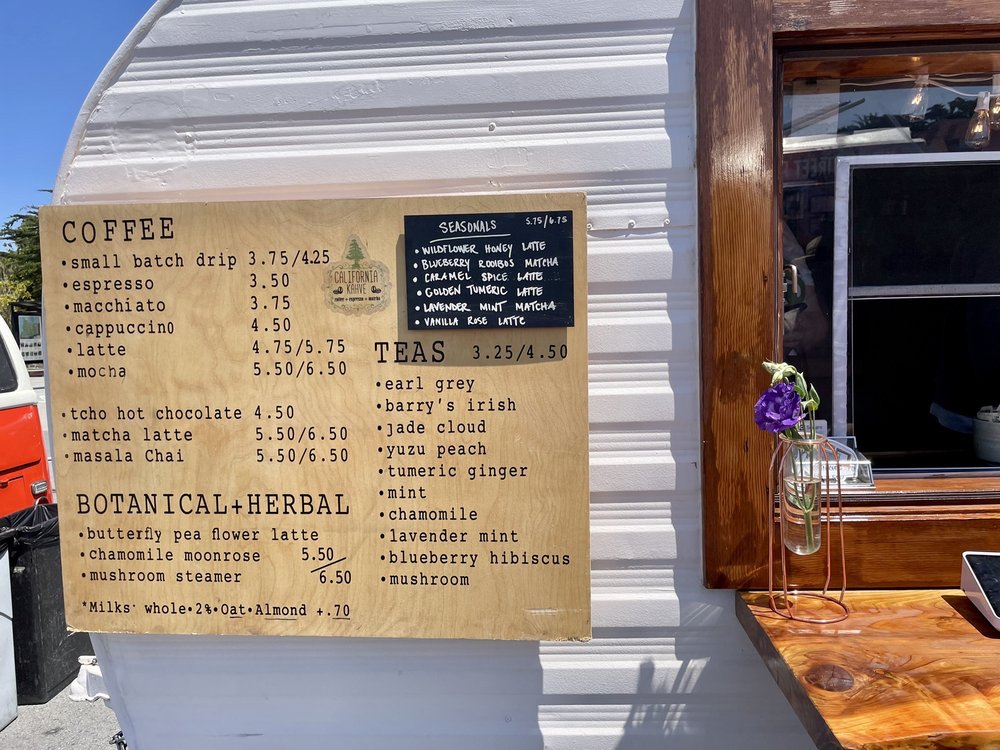 COFFEE
•small batch drip 3.75/4.25
•espresso 3.50
•macchiato 3.75
•cappuccino 4.50
•latte 4.75/5.75
•mocha 5.50/6.50
•tcho hot chocolate 4.50
•matcha latte 5.50/6.50
•masala Chai 5.50/6.50
BOTANICAL+HERBAL
•butterfly pea flower latte
•chamomile moonrose 5.50/
•mushroom steamer 6.50
*Milks: whole•2%•Oat•Almond +.70
CALIFORNIA
KAHVE
coffee • espresso • matcha
SEASONALS 5.75/6.75
•WILDFLOWER HONEY LATTE
•BLUEBERRY ROOIBOS MATCHA
•CARAMEL SPICE LATTE
•GOLDEN TUMERIC LATTE
•LAVENDER MINT MATCHA
•VANILLA ROSE LATTE
TEAS 3.25/4.50
•earl grey
•barry's irish
•jade cloud
•yuzu peach
•tumeric ginger
•mint
•chamomile
•lavender mint
•blueberry hibiscus
•mushroom